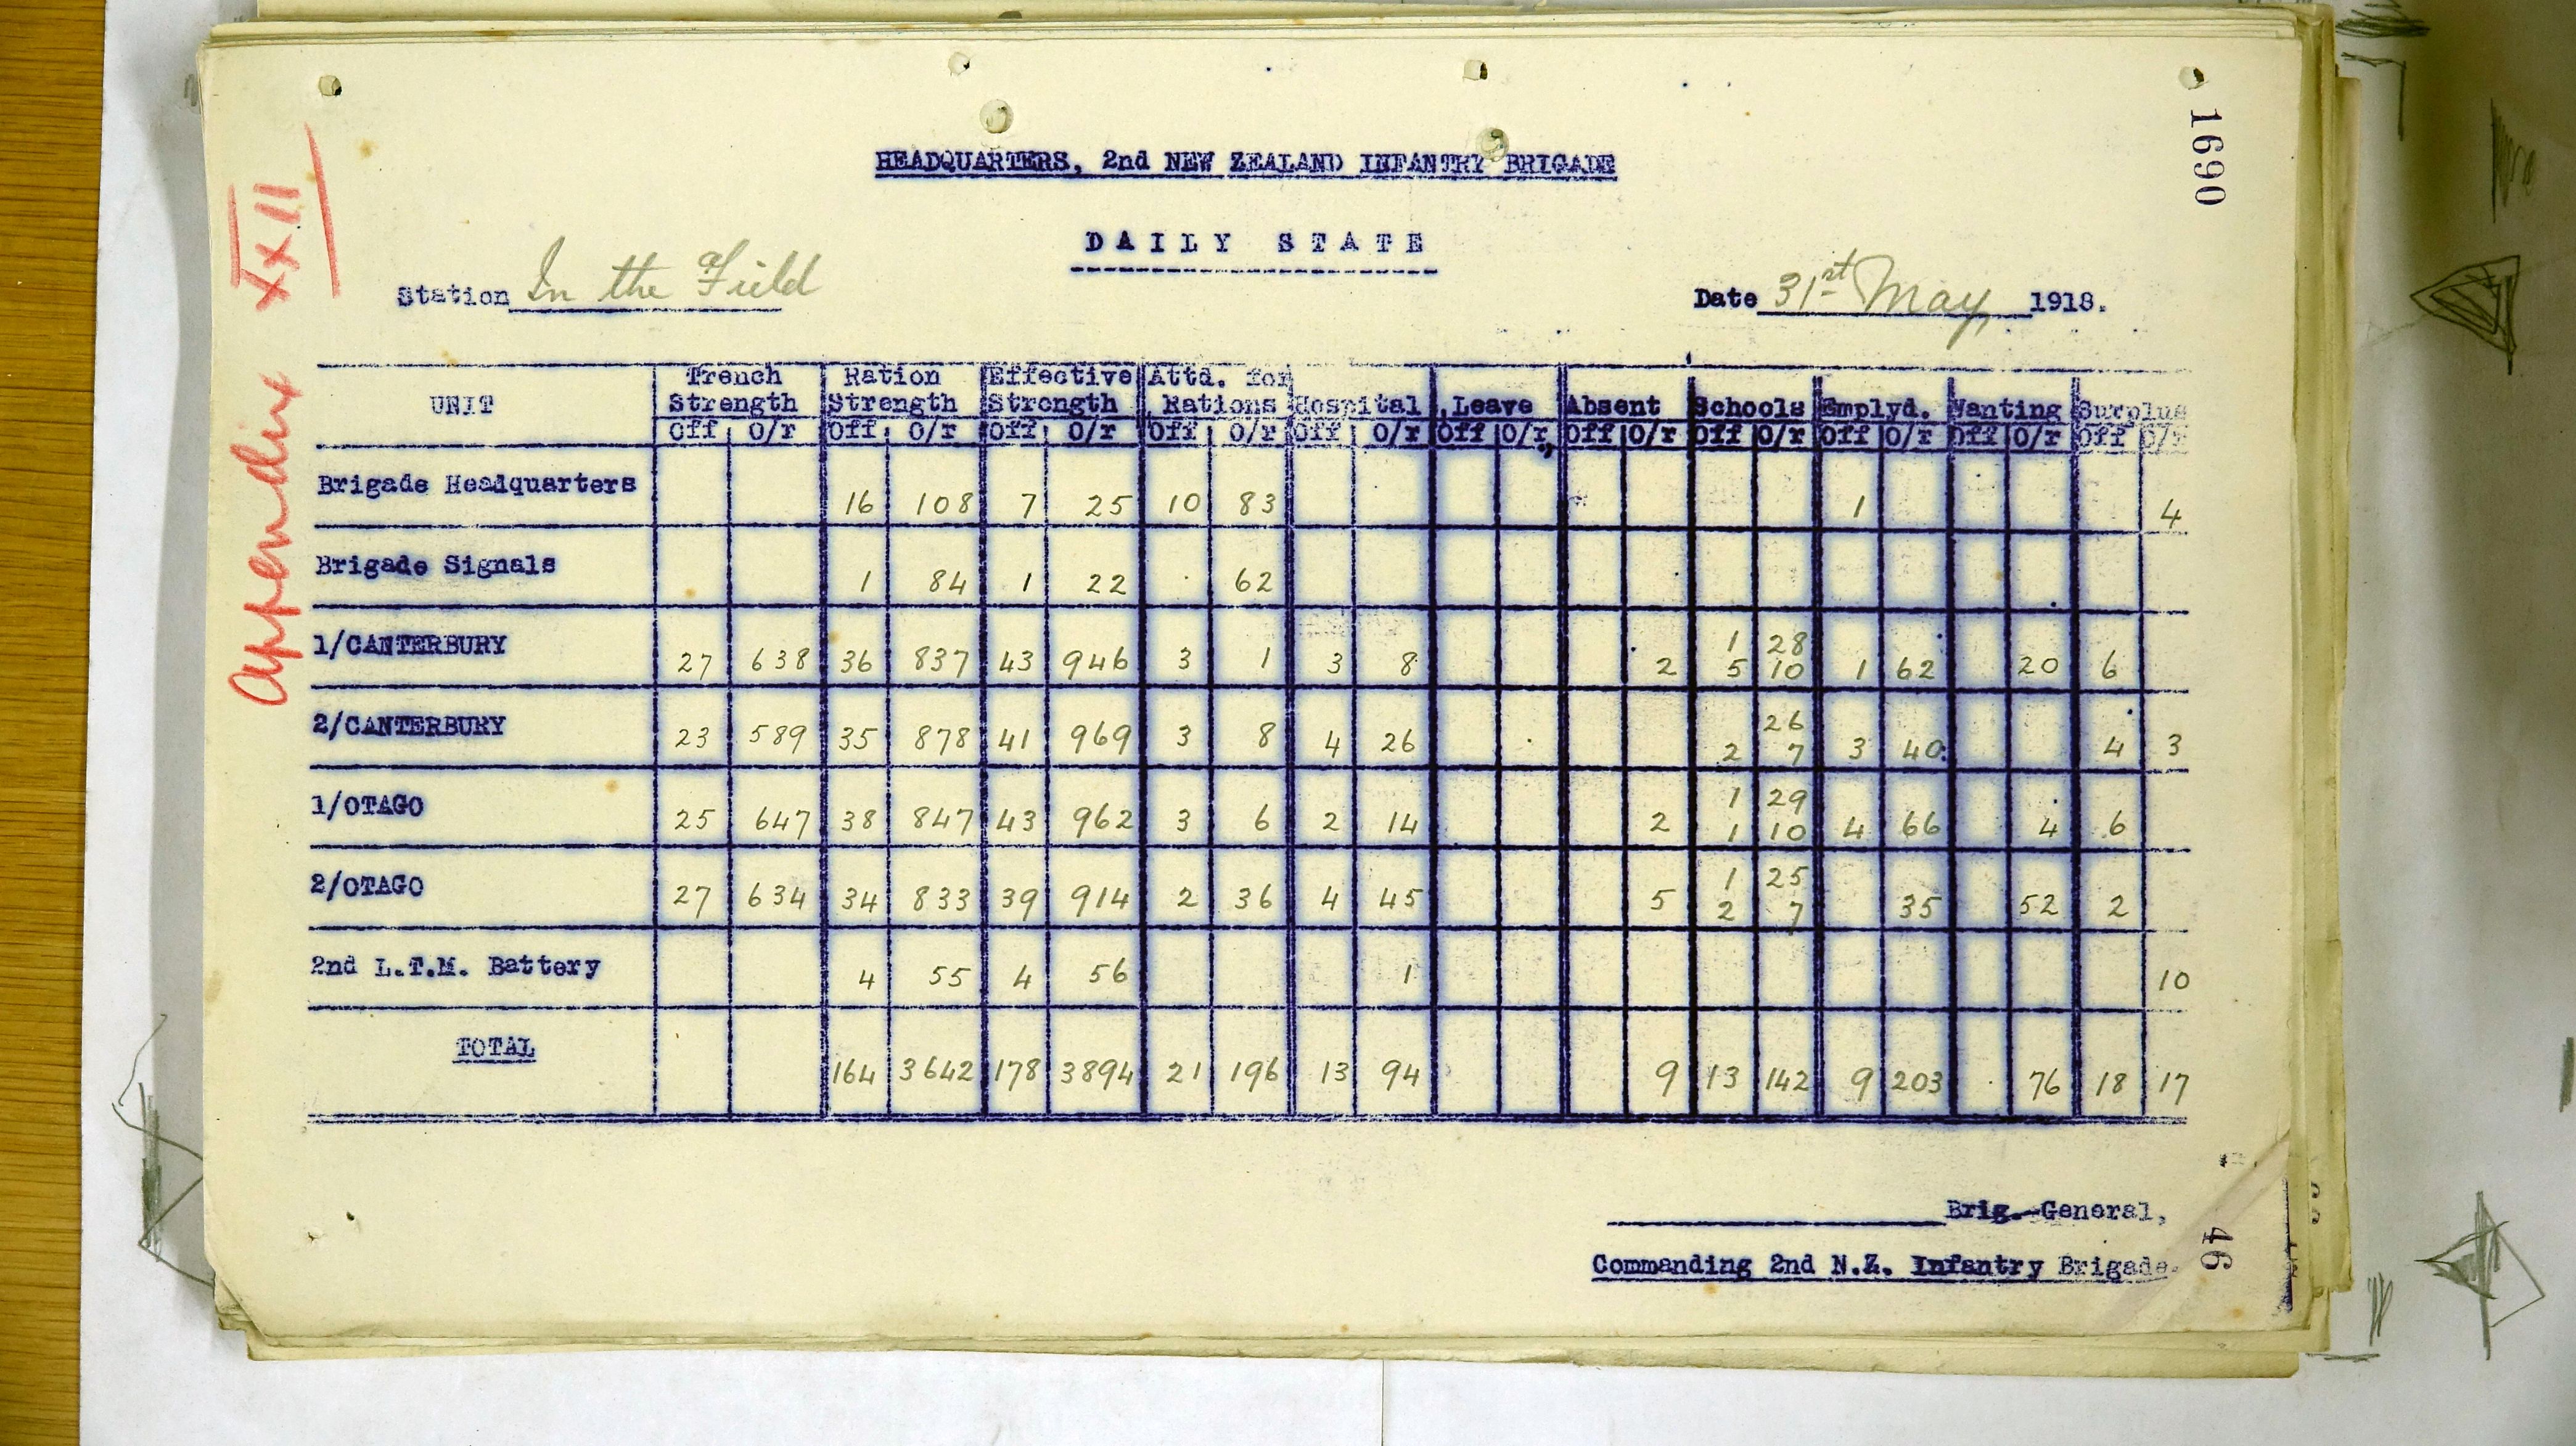 1690
HEADQUARTERS, 2nd NEW ZEALAND INFANTRY BRIGADE
DAILY STATE
Appendix XXII
Station In the Field Date 31st May, 1918.
UNIT Trench Strength Ration Strength Effective Strength Attd. for Rations Hospital Leave Absent Schools Emplyd. Wanting Surplus
Off O/r Off O/r Off O/r Off O/r Off O/r Off O/r, Off O/r Off O/r Off O/r Off O/r Off O/r
Brigade Headquarters 16 108 7 25 10 83 1 4
Brigade Signals 1 84 1 22 62
1 28
1/CANTERBURY 27 638 36 837 43 946 3 1 3 8 2 5 10 1 62 20 6
26
2/CANTERBURY 23 589 35 878 41 969 3 8 4 26 2 7 3 40 4 3
1 29
1/OTAGO 25 647 38 847 43 962 3 6 2 14 2 1 10 4 66 4 6
1 25
2/OTAGO 27 634 34 833 39 914 2 36 4 45 5 2 7 35 52 2
2nd L.T.M. Battery 4 55 4 56 1 10
TOTAL 164 3642 178 3894 21 196 13 94 9 13 142 9 203 76 18 17
Brig.-General,
Commanding 2nd N.Z. Infantry Brigade.
46